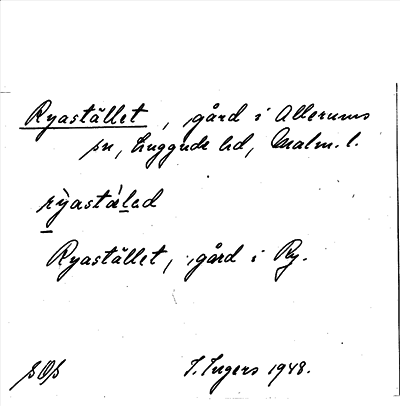 Ryastället, gård i Allerums
sn, Luggude hd, Malm. l.
ryastäled
Ryastället, gård i Ry.
SOS I. Ingers 1948.